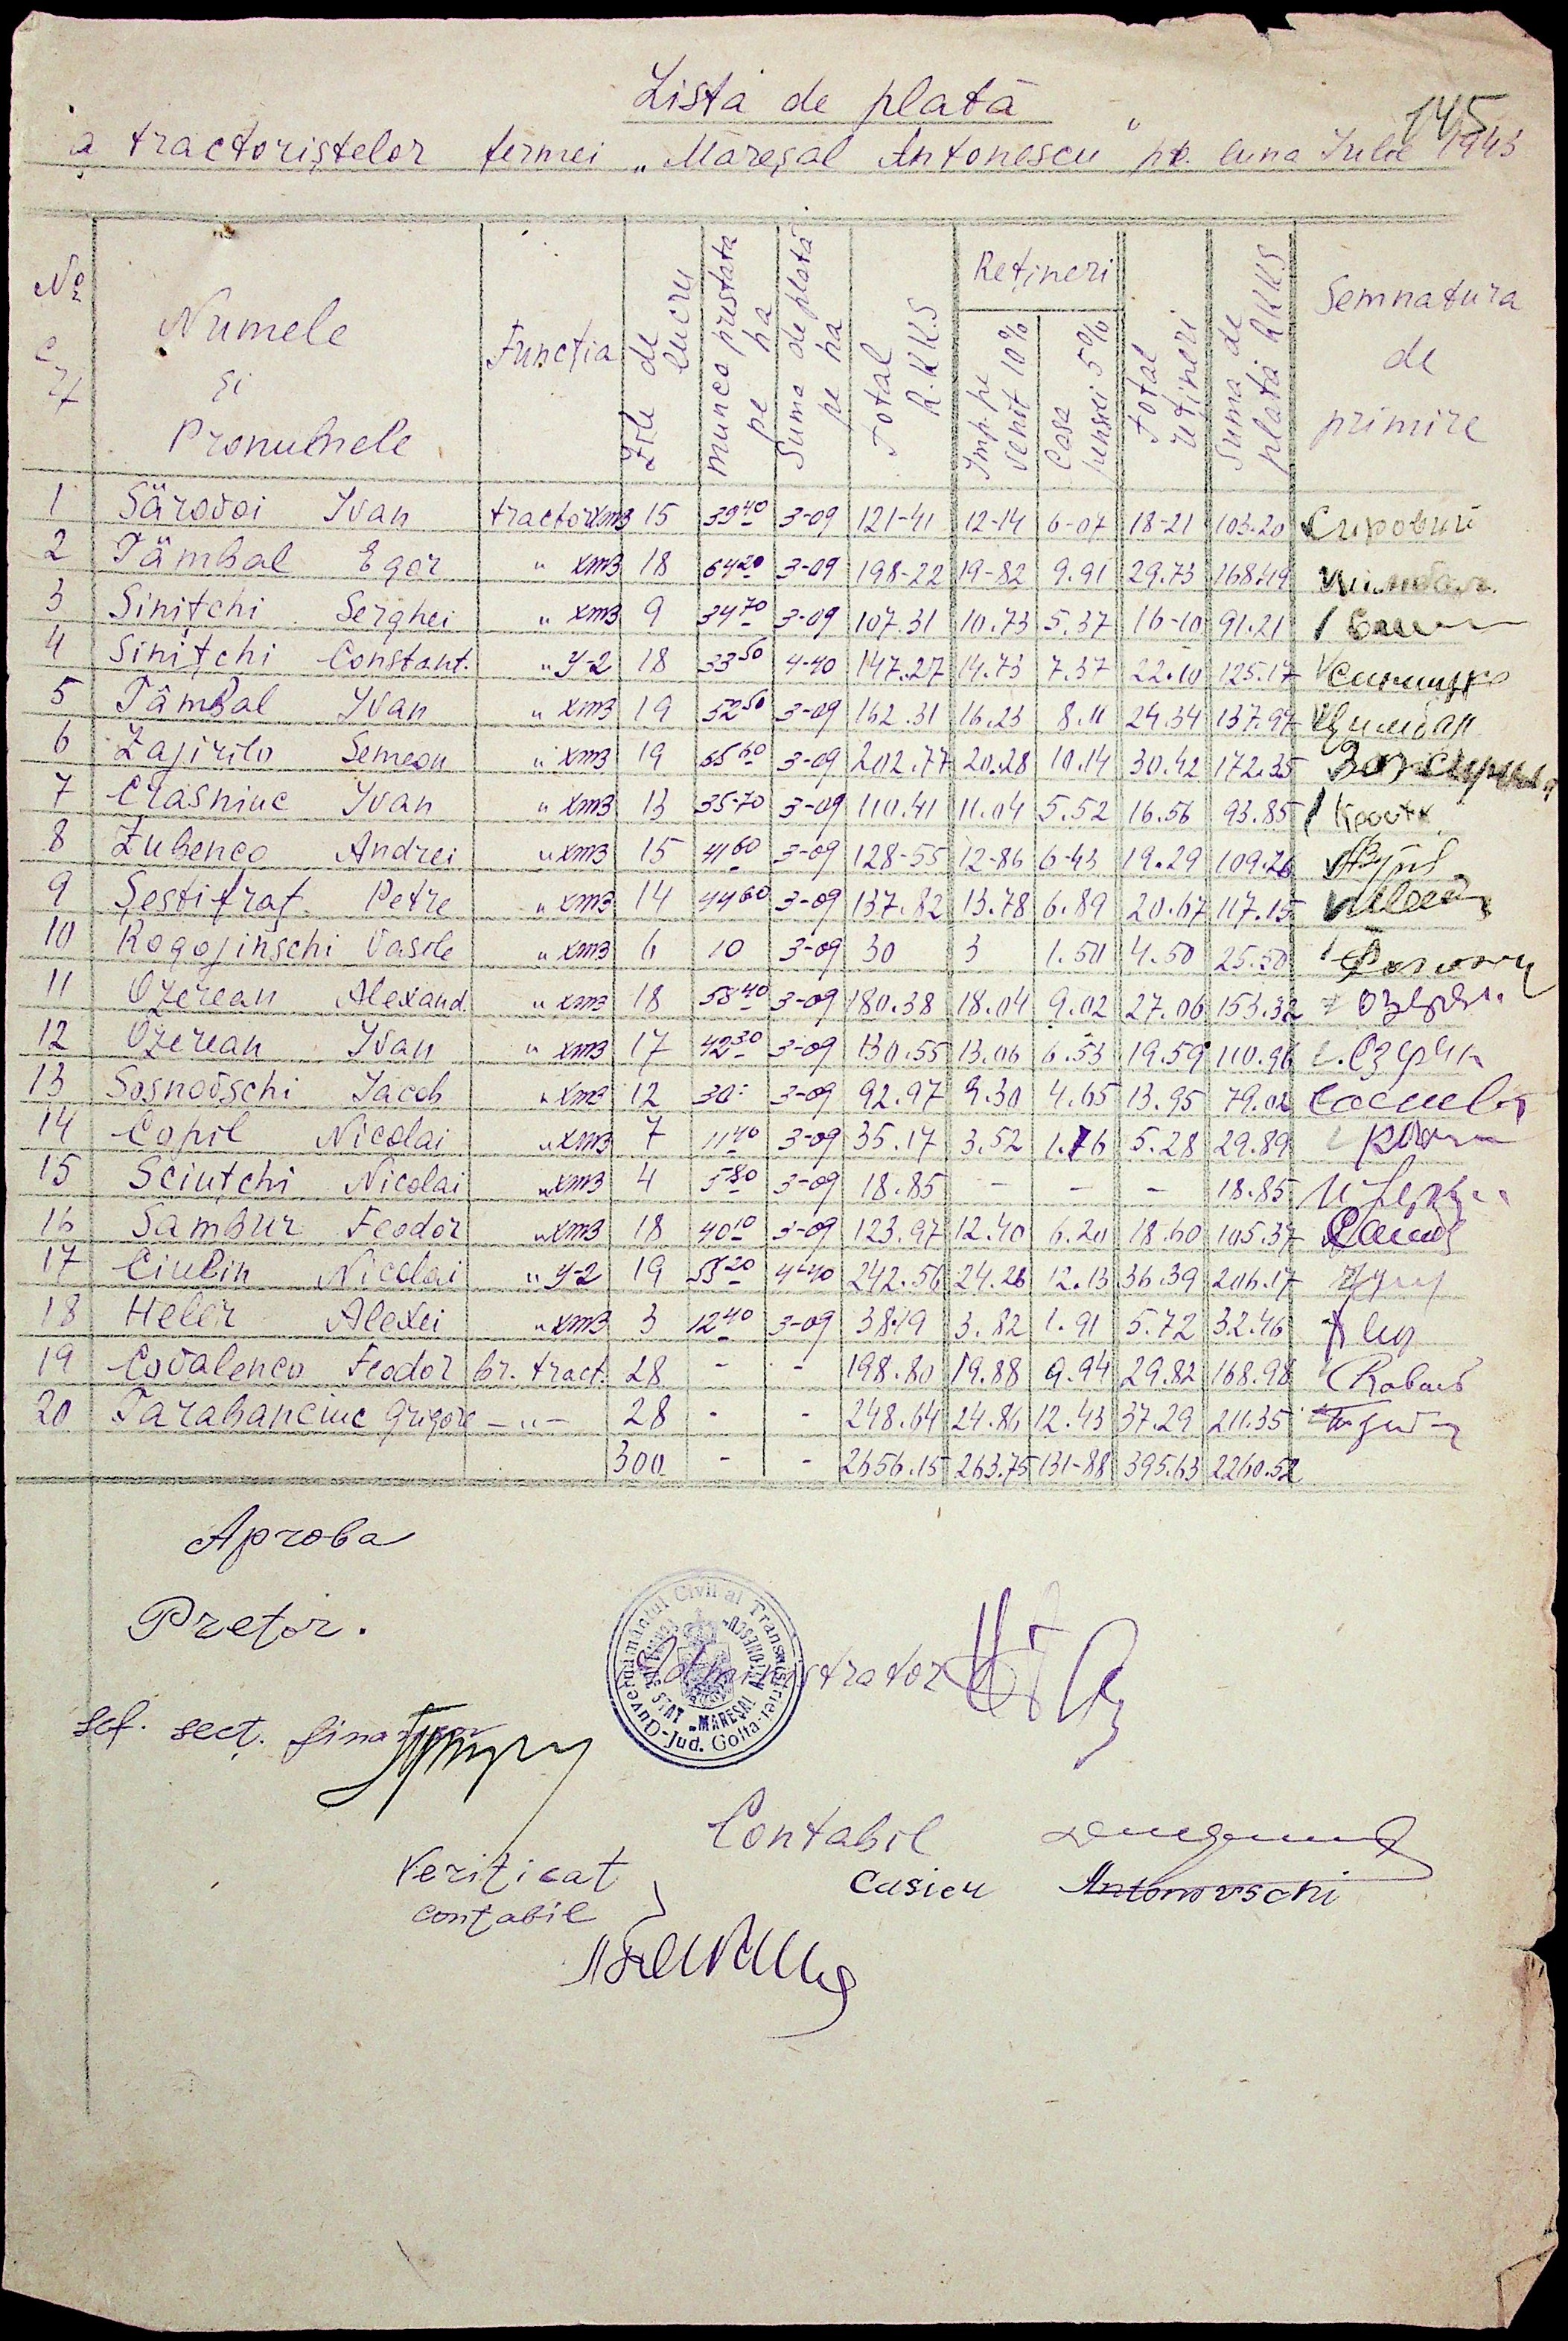 145
Lista de plată
a tractoriștelor fermei „Mareșal Antonescu" pt. luna Iulie 1943
No c-rt | Numele și Pronumele | Funcția | Zile de lucru | munca prestata pe ha | Suma de plată pe ha | Total R.KKS | Rețineri | Imp. pe venit 10% | Casa pensiei 5% | Total rețineri | Suma de plată RKKS | Semnatura de primire
1 Sărovoi Ivan tractor xmз 15 39 40 3-09 121-41 12-14 6-07 18-21 103.20 Сировий
2 Țămbal Egor " xmз 18 64 20 3-09 198-22 19-82 9.91 29.73 168.49 Цимбал
3 Sinițchi Serghei " xmз 9 34 70 3-09 107.31 10.73 5.37 16-10 91.21
4 Sinițchi Constant. " У-2 18 33 50 4-40 147.27 14.73 7.37 22.10 125.17 Синицки
5 Țâmbal Ivan " xmз 19 52 50 3-09 162.31 16.23 8.11 24.34 137.97 Цимбал
6 Zajirilo Semeon " xmз 19 65 60 3-09 202.77 20.28 10.14 30.42 172.35
7 Crasniuc Ivan " xmз 13 35-70 3-09 110.41 11.04 5.52 16.56 93.85
8 Zubenco Andrei " xmз 15 41 60 3-09 128-55 12-86 6-43 19.29 109.26
9 Șestitraț Petre " xmз 14 44 60 3-09 137.82 13.78 6.89 20.67 117.15
10 Rogojinschi Vasile " xmз 6 10 3-09 30 3 1.50 4.50 25.50
11 Ozerean Alexand. " xmз 18 58 40 3-09 180.38 18.04 9.02 27.06 153.32
12 Ozerean Ivan " xmз 17 42 30 3-09 130.55 13.06 6.53 19.59 110.96
13 Sosnovschi Iacob " xmз 12 30: 3-09 92.97 9.30 4.65 13.95 79.02
14 Copil Nicolai " xmз 7 11 40 3-09 35.17 3.52 1.76 5.28 29.89
15 Sciuțchi Nicolai " xmз 4 5 80 3-09 18.85 – – – 18.85
16 Sambur Feodor " xmз 18 40 10 3-09 123.97 12.40 6.20 18.60 105.37
17 Ciubin Nicolai " У-2 19 55 20 4-40 242.56 24.26 12.13 36.39 206.17
18 Heler Alexei " xmз 3 12 40 3-09 38.19 3.82 1.91 5.72 32.46
19 Covalenco Feodor br. tract. 28 - - 198.80 19.88 9.94 29.82 168.98
20 Tarabanciuc Grigore –"– 28 - - 248.64 24.86 12.43 37.29 211.35
300 - - 2656.15 263.75 131-88 395.63 2260.52
Aproba
Pretor.
Guvernământul Civil al Transnistriei-Jud. Golta
FERMA DE STAT „MAREȘAL ANTONESCU"
Administrator
Șef. secț. finanțelor
Contabil
Verificat
contabil
Casier Antonovschi